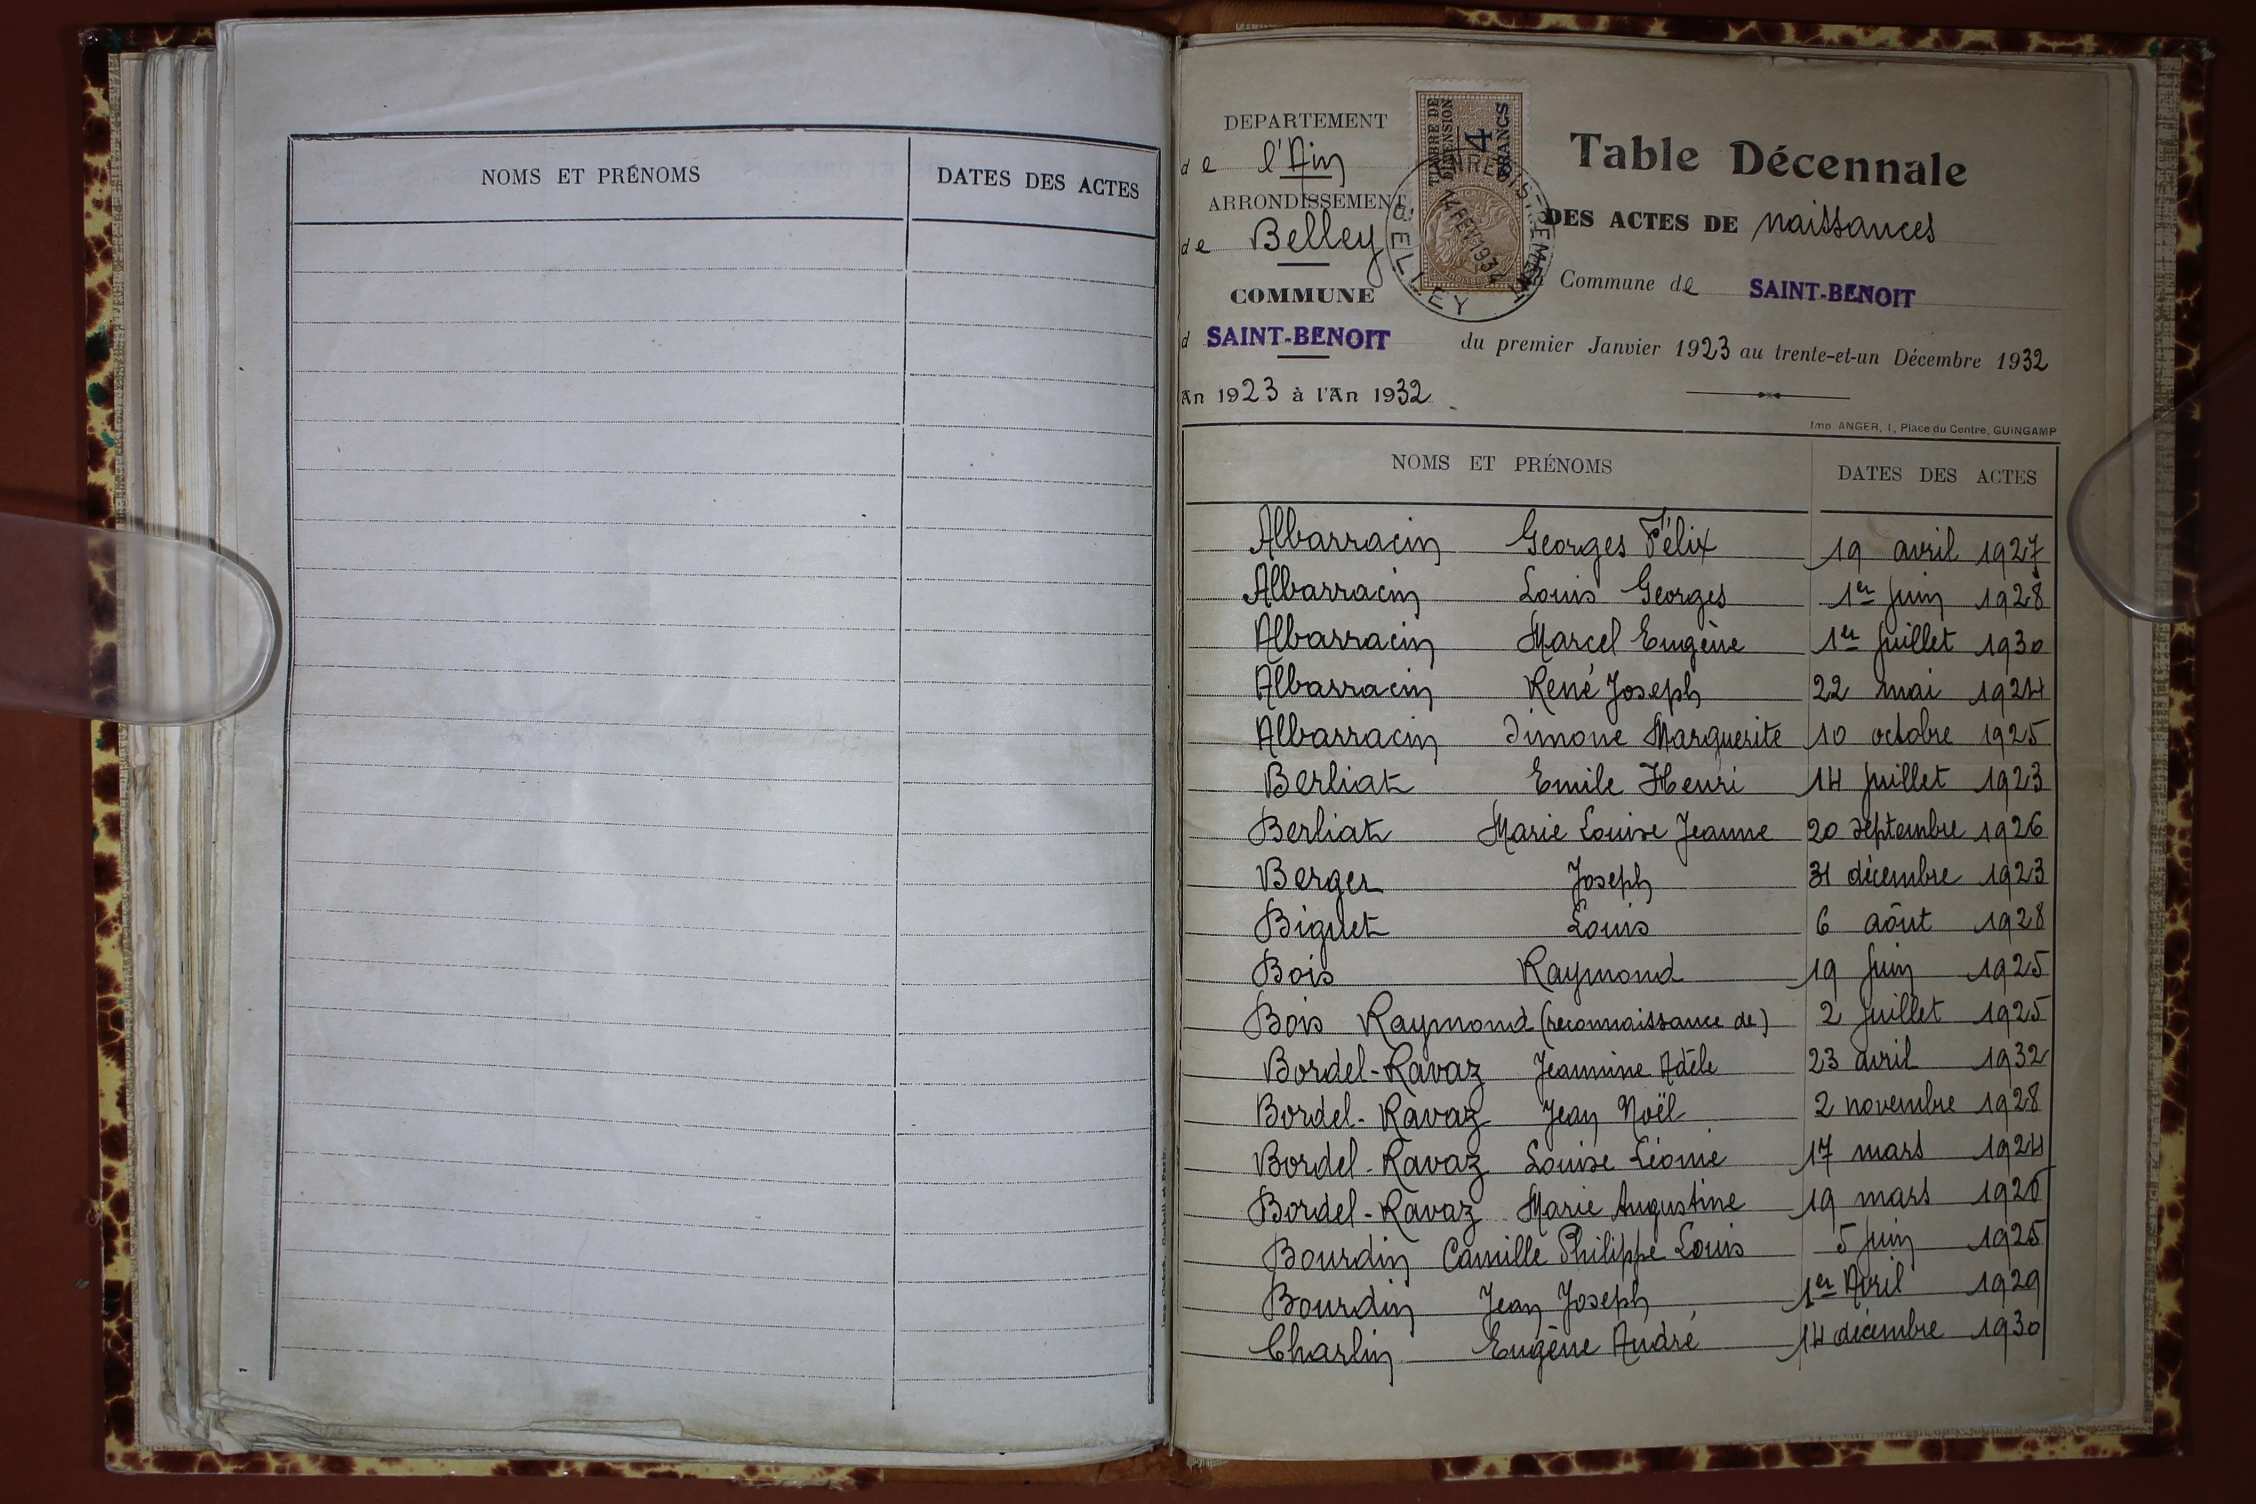 NOMS ET PRÉNOMS DATES DES ACTES
DEPARTEMENT
de l'Ain
ARRONDISSEMENT
de Belley
COMMUNE
d SAINT-BENOIT
An 1923 à l'An 1932
TIMBRE DE
DIMENSION
4
FRANCS
ENREGISTREMENT
14 FEV 1934
BELLEY
Table Décennale
DES ACTES DE naissances
Commune de SAINT-BENOIT
du premier Janvier 1923 au trente-et-un Décembre 1932
Imp. ANGER, 1, Place du Centre, GUINGAMP
NOMS ET PRÉNOMS DATES DES ACTES
Albarracin Georges Félix 19 avril 1927
Albarracin Louis Georges 1er juin 1928
Albarracin Marcel Eugène 1er juillet 1930
Albarracin René Joseph 22 mai 1924
Albarracin Simone Marguerite 10 octobre 1925
Berliat Emile Henri 14 juillet 1923
Berliat Marie Louise Jeanne 20 septembre 1926
Berger Joseph 31 décembre 1923
Biguet Louis 6 aôut 1928
Bois Raymond 19 juin 1925
Bois Raymond (reconnaissance de) 2 juillet 1925
Bordel-Ravaz Jeannine Adèle 23 avril 1932
Bordel-Ravaz Jean Noël 2 novembre 1928
Bordel-Ravaz Louise Léonie 17 mars 1924
Bordel-Ravaz Marie Augustine 19 mars
Bourdin Camille Philippe Louis 5 juin 1925
Bourdin Jean Joseph 1er Avril 1929
Charlin Eugène André 14 décembre 1930